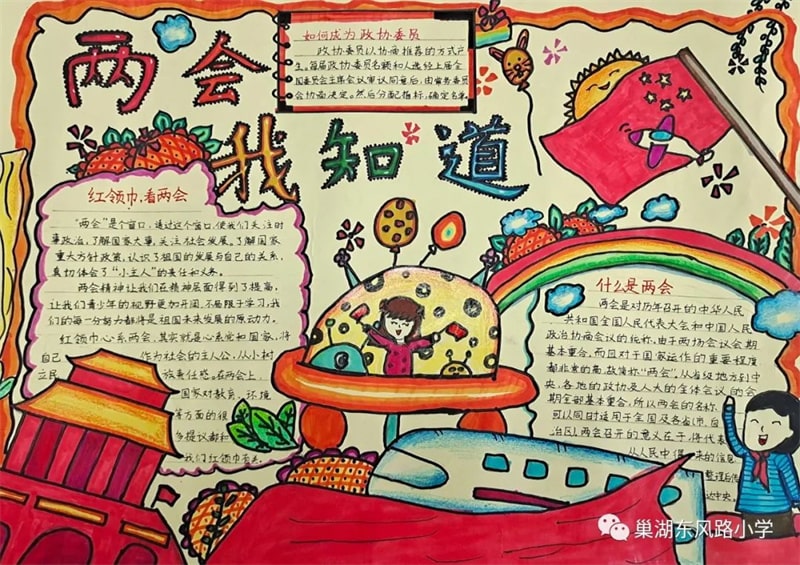 两会
我知道
如何成为政协委员
政协委员以协商推荐的方式产
生。每届政协委员名额和人选经上届全
国委员会主席会议审议同意后，由常务委员
会协商决定。然后分配指标，确定名单。
红领巾，看两会
“两会”是个窗口，通过这个窗口，使我们关注时
事政治，了解国家大事，关注社会发展。了解国家
重大方针政策，认识了祖国的发展与自己的关系，
真切体会了“小主人”的责任和义务。
两会精神让我们在精神层面得到了提高，
让我们青少年的视野更加开阔，不局限于学习，我
们的每一分努力都将是祖国未来发展的原动力。
红领巾心系两会，其实就是心系党和国家，将
自己 作为社会的主人公，从小树
立民 族责任感。在两会上，
国家对教育、环境
等方面的很
多提议都和
我们红领巾有关。
什么是两会
两会是对历年召开的中华人民
共和国全国人民代表大会和中国人民
政治协商会议的统称，由于两场会议会期
基本重合，而且对于国家运作的重要程度
都非常的高，故简称“两会”。从省级地方到中
央，各地的政协及人大的全体会议的会
期全部基本重合，所以两会的名称
可以同时适用于全国及各省（市、自
治区）。两会召开的意义在于：将代表
从人民中得来的信息
整理后传
达中央。
巢湖东风路小学